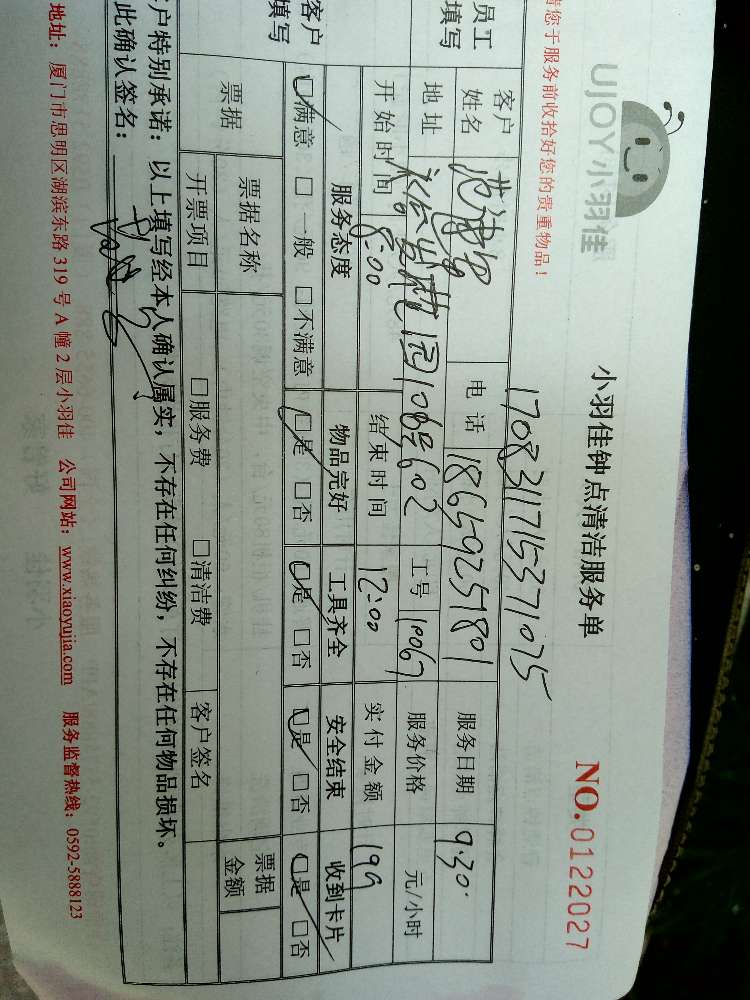 UJOY小羽佳
小羽佳钟点清洁服务单
NO.0122027
请您于服务前收拾好您的贵重物品！
1708311715371075
员工填写
客户姓名 电话 18659251801 服务日期 9.30.
地址 园108号602 工号 10067 服务价格 元/小时
开始时间 8:00 结束时间 12:00 实付金额 199
客户填写
服务态度 物品完好 工具齐全 安全结束 收到卡片
☑满意 □一般 □不满意 ☑是 □否 ☑是 □否 ☑是 □否 ☑是 □否
票据 票据名称 票据金额
开票项目 □服务费 □清洁费 客户签名
户特别承诺：以上填写经本人确认属实，不存在任何纠纷，不存在任何物品损坏。
此确认签名：
地址：厦门市思明区湖滨东路319号A幢2层小羽佳 公司网站：www.xiaoyujia.com 服务监督热线：0592-5888123